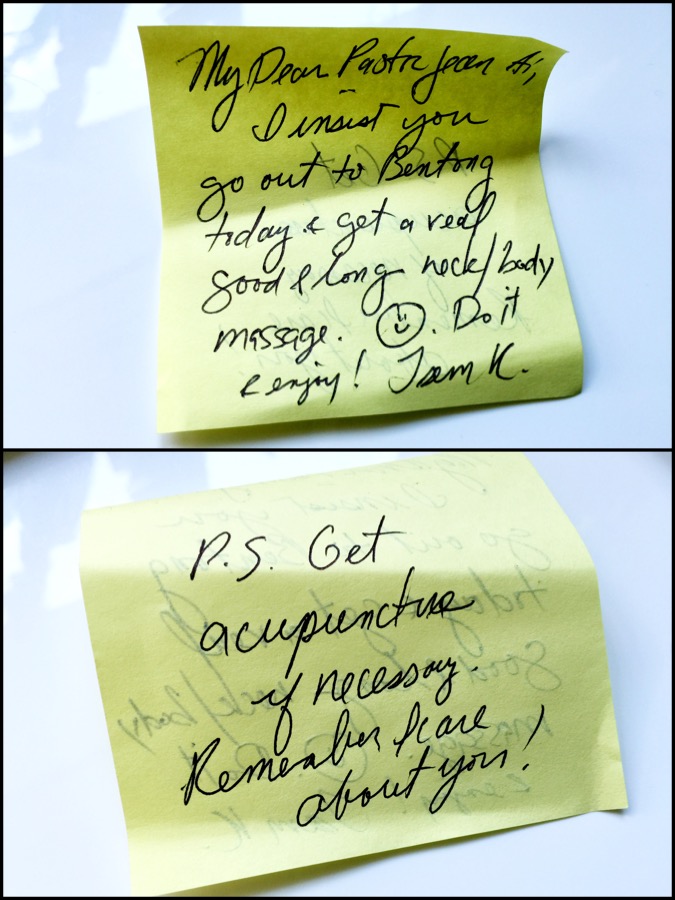 My Dear Pastr Jean Ai,
I insist you
go out to Bentong
today & get a real
good & long neck/body
massage. ☺. Do it
& enjoy! Tsam K.
P.S. Get
acupuncture
if necessary.
Remember I care
about you!